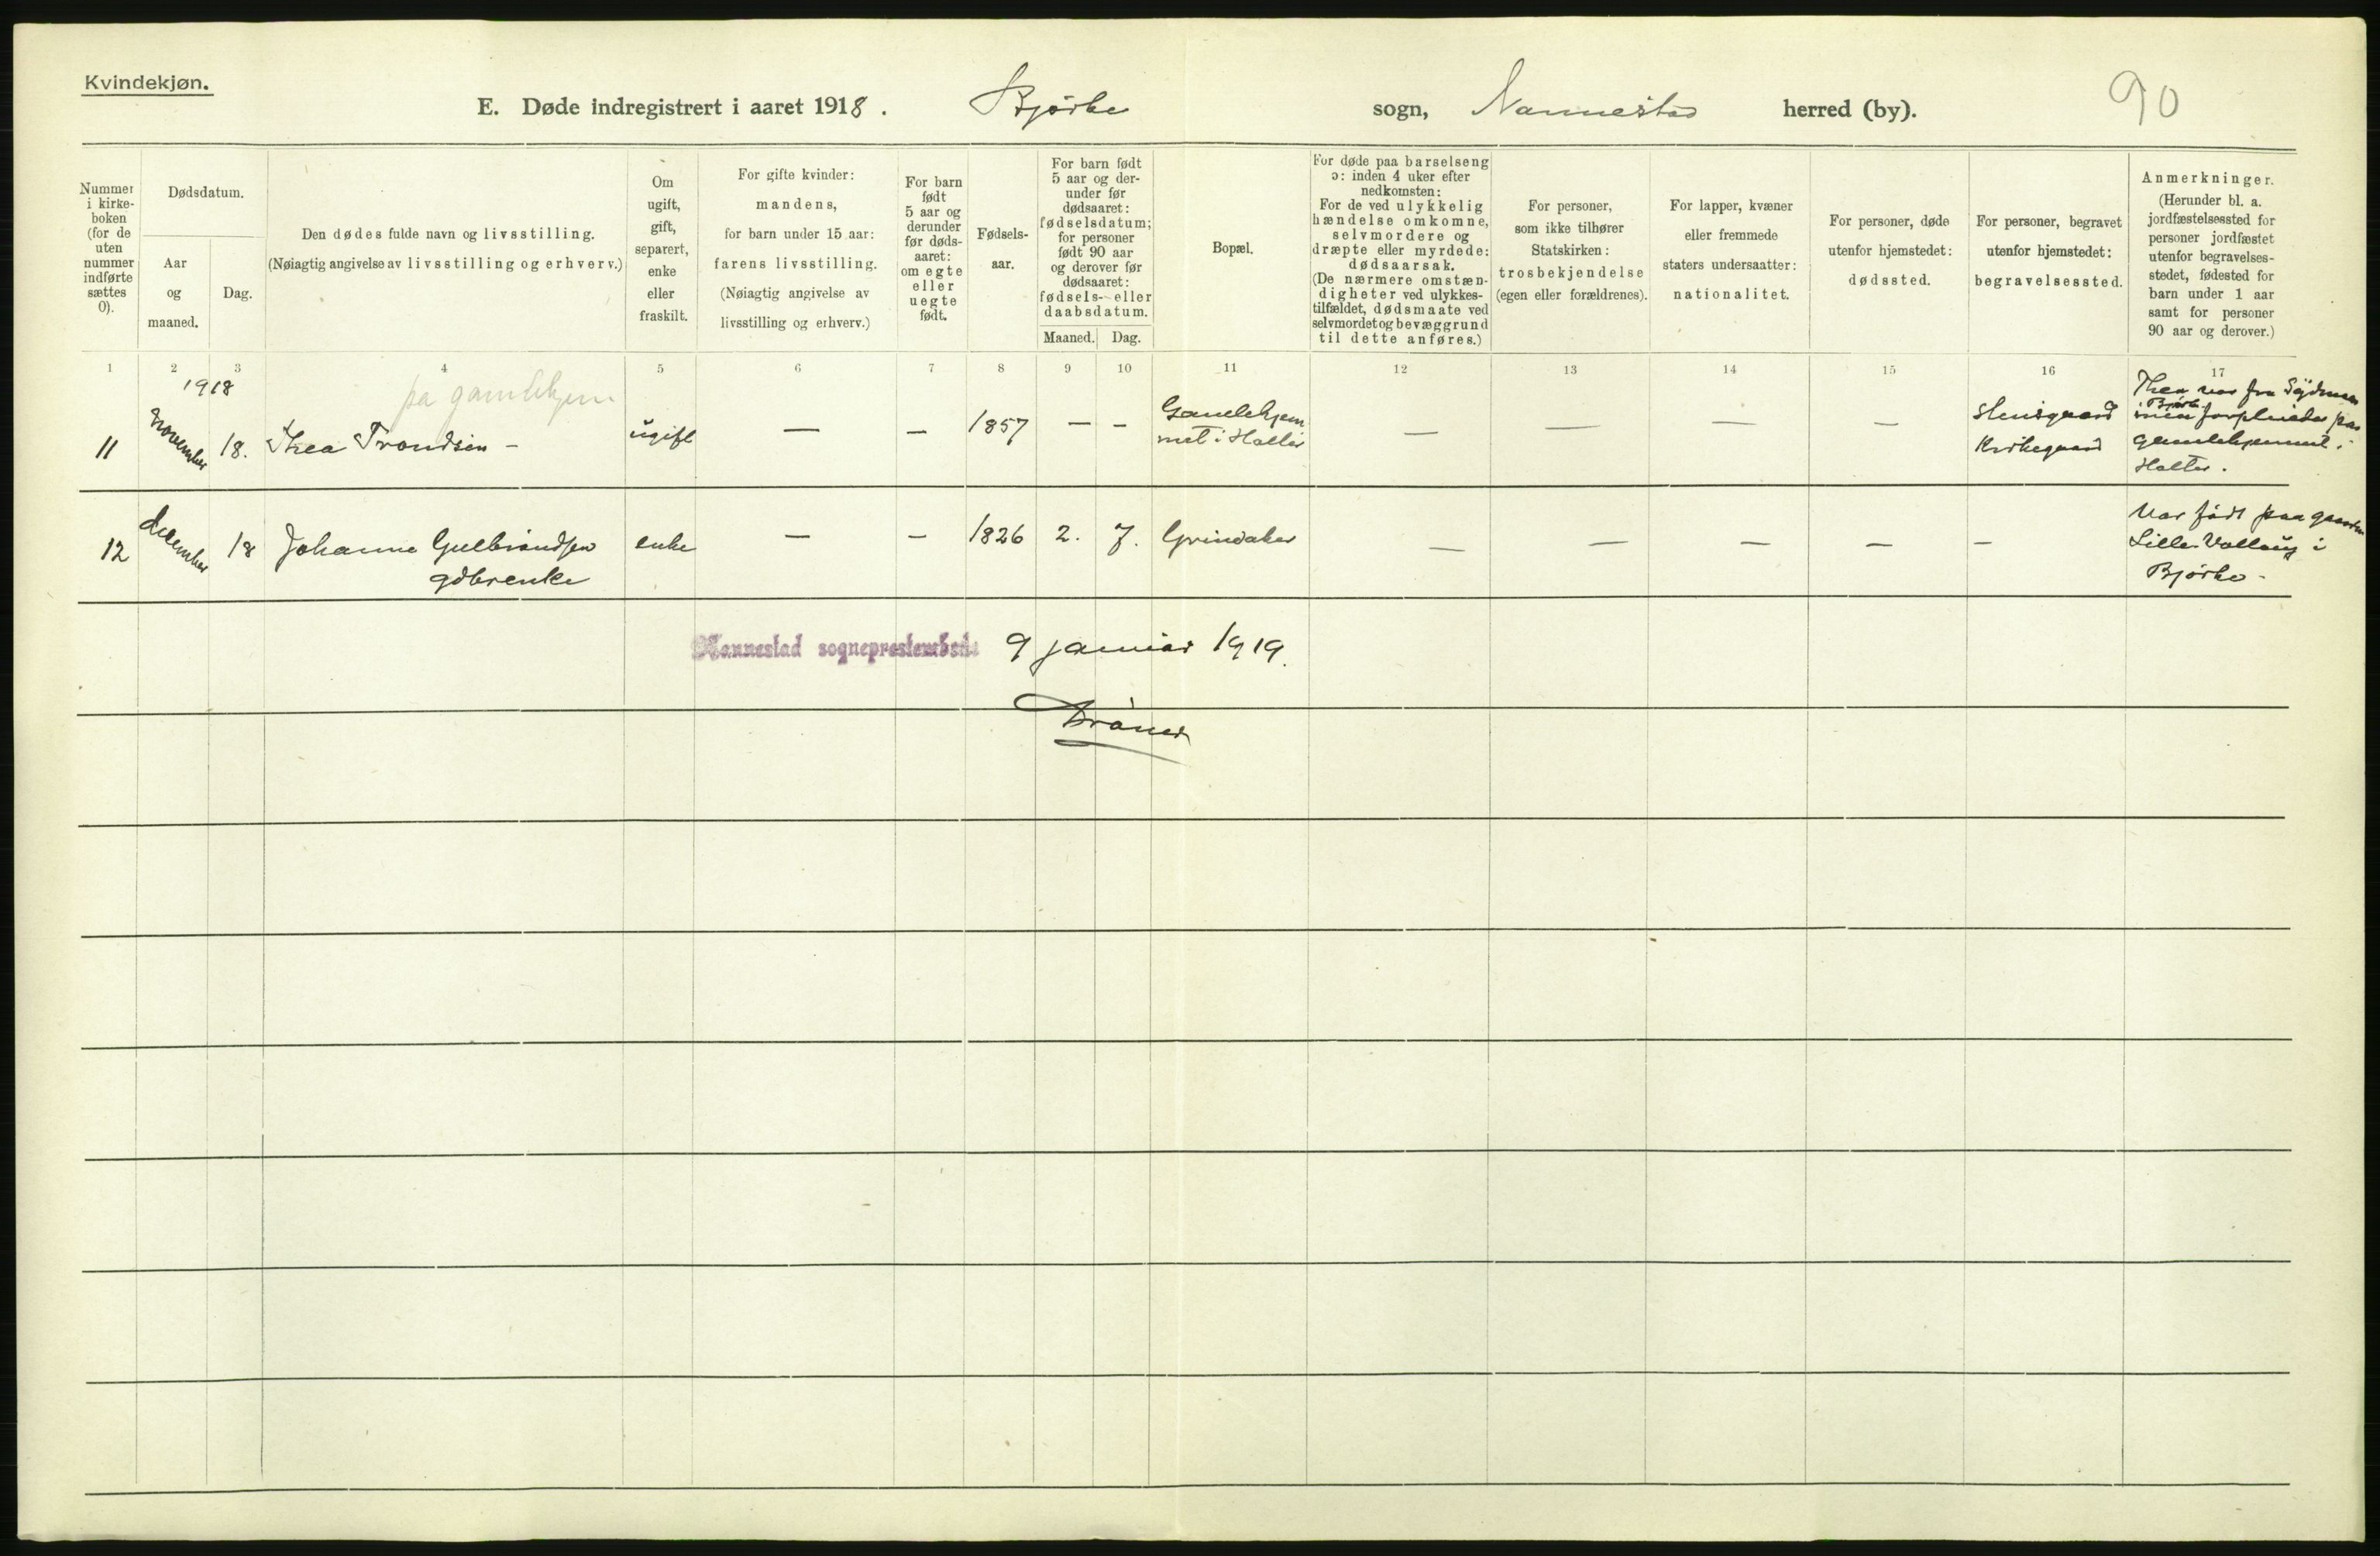 Kvindekjøn.
90
E. Døde indregistrert i aaret 1918. Bjørke sogn, Nannestad herred (by).
Nummer
i kirke-
boken
(for de
uten
nummer
indførte
sættes
0).
Dødsdatum.
Aar
og
maaned.
Dag.
Den dødes fulde navn og livsstilling.
(Nøiagtig angivelse av livsstilling og erhverv.)
Om
ugift,
gift,
separert,
enke
eller
fraskilt.
For gifte kvinder:
mandens,
for barn under 15 aar:
farens livsstilling.
(Nøiagtig angivelse av
livsstilling og erhverv.)
For barn
født
5 aar og
derunder
før døds-
aaret:
om egte
eller
uegte
født.
Fødsels-
aar.
For barn født
5 aar og der-
under før
dødsaaret:
fødselsdatum;
for personer
født 90 aar
og derover før
dødsaaret:
fødsels- eller
daabsdatum.
Maaned. Dag.
Bopæl.
For døde paa barselseng
ɔ: inden 4 uker efter
nedkomsten:
For de ved ulykkelig
hændelse omkomne,
selvmordere og
dræpte eller myrdede:
dødsaarsak.
(De nærmere omstæn-
digheter ved ulykkes-
tilfældet, dødsmaate ved
selvmordet og bevæggrund
til dette anføres.)
For personer,
som ikke tilhører
Statskirken:
trosbekjendelse
(egen eller forældrenes).
For lapper, kvæner
eller fremmede
staters undersaatter:
nationalitet.
For personer, døde
utenfor hjemstedet:
dødssted.
For personer, begravet
utenfor hjemstedet:
begravelsessted.
Anmerkninger.
(Herunder bl. a.
jordfæstelsessted for
personer jordfæstet
utenfor begravelses-
stedet, fødested for
barn under 1 aar
samt for personer
90 aar og derover.)
1 2 3 4 5 6 7 8 9 10 11 12 13 14 15 16 17
1918
på gamlehjem
11 November 18. Thea Trondsen - ugift — — 1857 — — Gamlehjem
met i Holter — — — — Hensgaard
Kirkegaard
Thea var fra
Bjørke
men forpleiedes paa
gamlehjemmet i
Holter.
12 december 18 Johanne Gulbrandsen
gdbrenke
enke — — 1826 2. 7. Grindaker — — — — —
Var født paa gaarden
Lille Vollaug i
Bjørke -
Nannestad sogneprestembede 9 januar 1919.